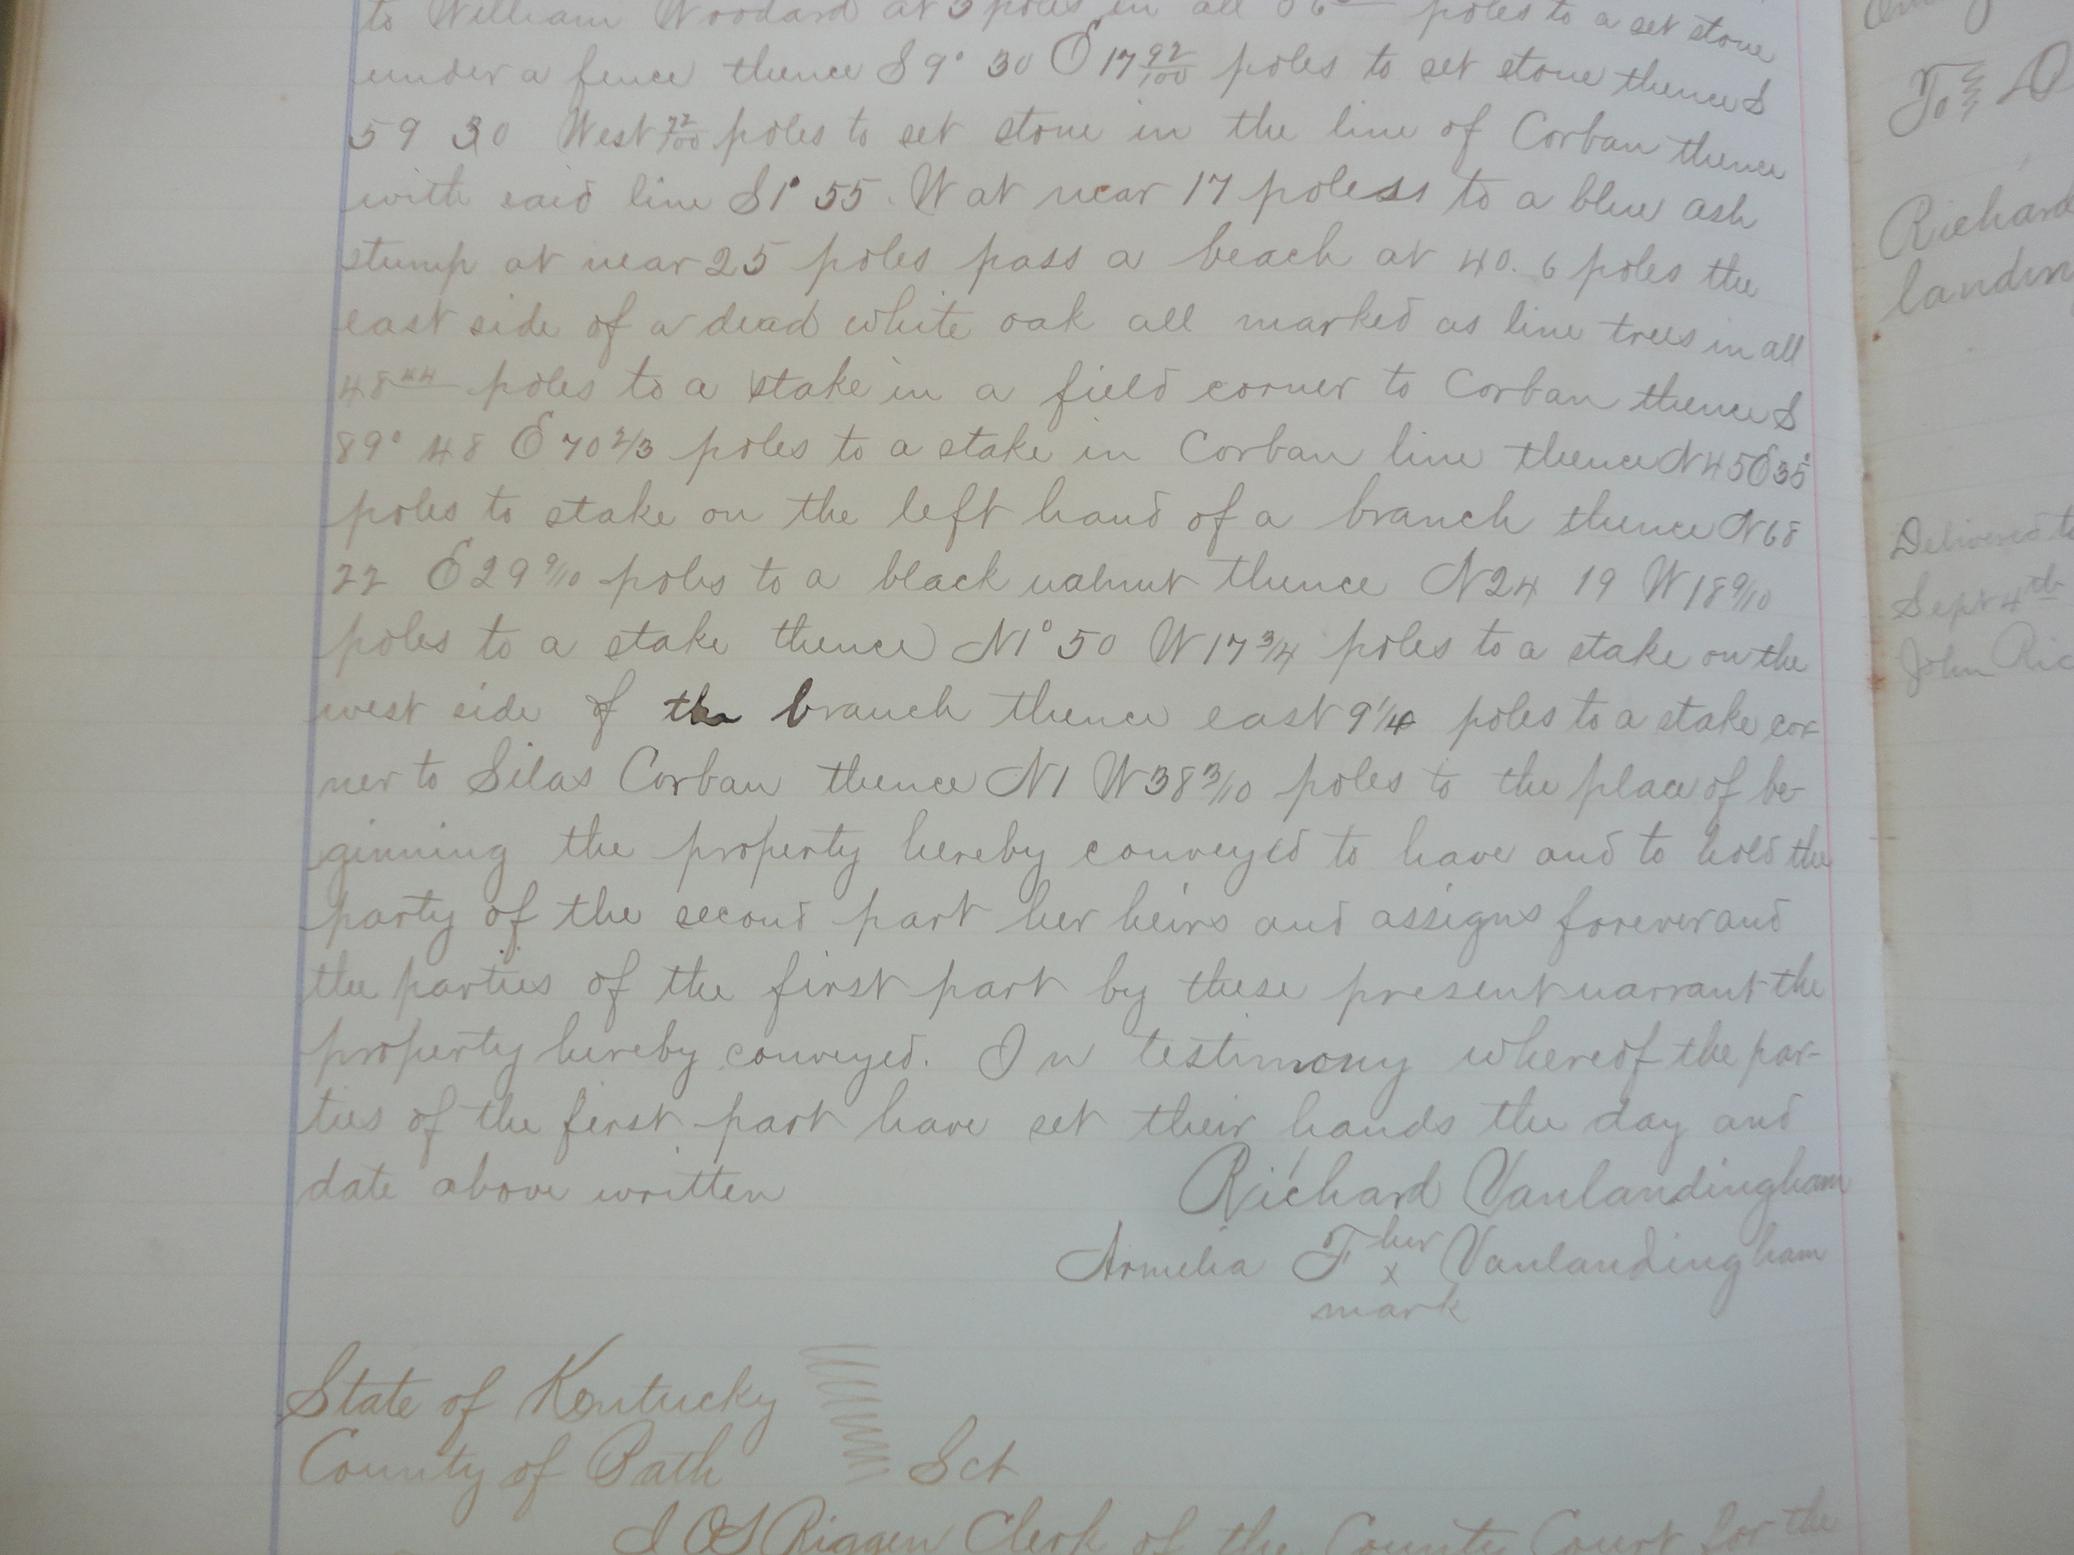 to William Woodard at 3 poles in all poles to a set stone
under a fence thence S 9° 30 E 17 92/100 poles to set stone thence S
59 30 West 72/100 poles to set stone in the line of Corban thence
with said line S 1° 55. W at near 17 poles to a blue ash
stump at near 25 poles pass a beach at 40.6 poles the
east side of a dead white oak all marked as line trees in all
48 44 poles to a stake in a field corner to Corban thence S
89° 48 E 70 2/3 poles to a stake in Corban line thence N 45 E 35
poles to stake on the left hand of a branch thence N 68
22 E 29 9/10 poles to a black walnut thence N 24 19 W 18 9/10
poles to a stake thence N 1° 50 W 17 3/4 poles to a stake on the
west side of the branch thence east 9 1/4 poles to a stake cor
ner to Silas Corban thence N 1 W 38 3/10 poles to the place of be-
ginning the property hereby conveyed to have and to hold the
party of the second part her heirs and assigns forever and
the parties of the first part by these present warrant the
property hereby conveyed. In testimony whereof the par-
ties of the first part have set their hands the day and
date above written
Richard Vanlandingham
Armelia F her Vanlandingham
x
mark
State of Kentucky
County of Bath Sct
I OS Riggen Clerk of the County Court for the
To
Richard
landin
Delivered to
Sept 4th
John Ric